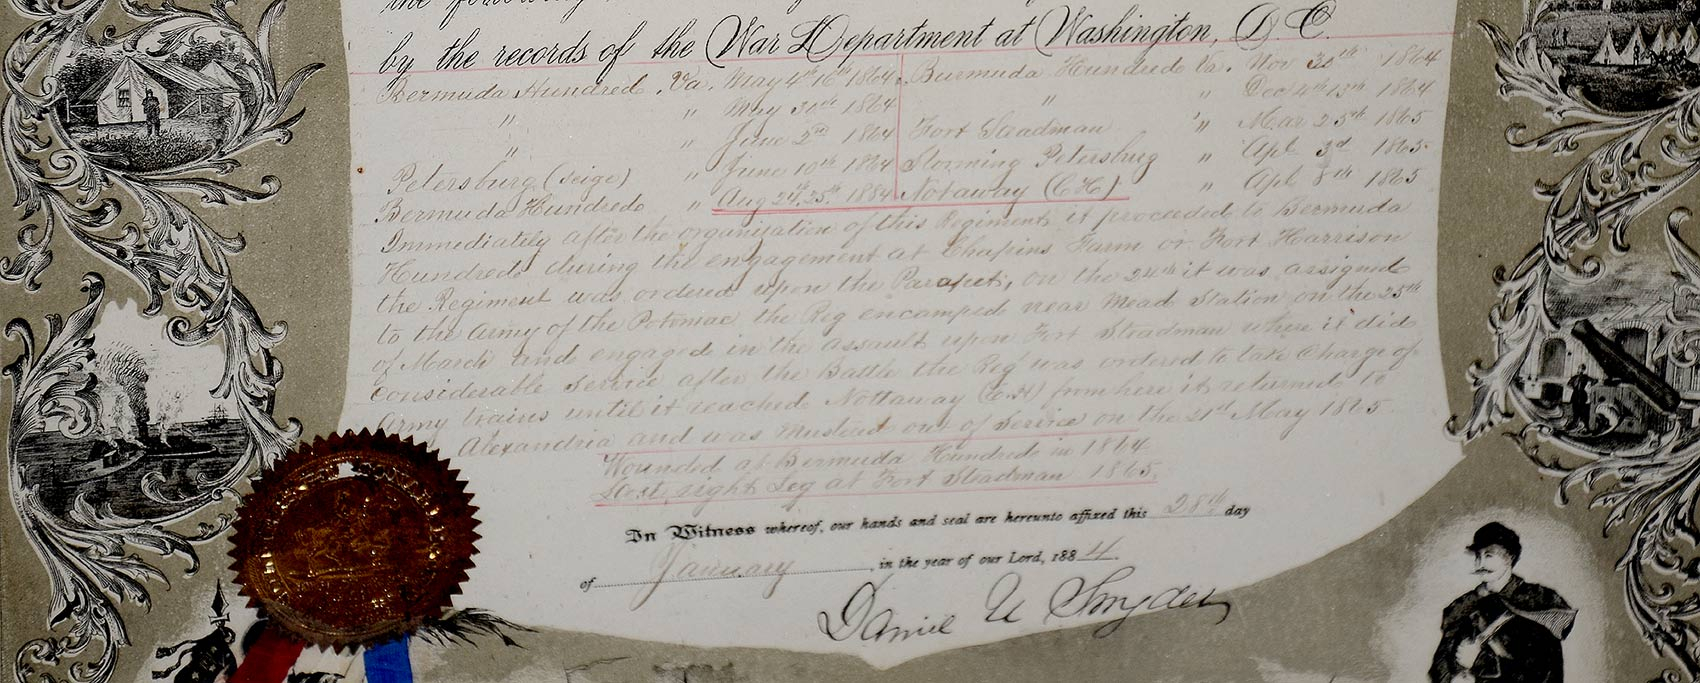 the following
by the records of the War Department at Washington, D. C.
Bermuda Hundred Va. May 4th 16th 1864. Bermuda Hundred Va. Nov 30th 1864
" " May 30th 1864 " " Dec 4th 13th 1864
" " June 2nd 1864 Fort Steadman " Mar 25th 1865
Petersburg (seige) " June 10th 1864 Storming Petersburg " Apl 3d 1865
Bermuda Hundred " Aug 24th, 25th 1884 Notaway (C H) " Apl 8th 1865
Immediately after the organization of this Regiment, it proceeded to Bermuda
Hundred, during the engagement at Chapins Farm or Fort Harrison
the Regiment was ordered upon the Parapets, on the 24th it was assigned
to the Army of the Potomac the Reg encamped near Mead Station on the 25th
of March and engaged in the assault upon Fort Steadman where it did
Considerable Service after the Battle the Reg was ordered to take Charge of
Army trains until it reached Nottaway (C.H) from here it returned to
Alexandria and was Mustead out of Service on the 21st May 1865
Wounded at Bermuda Hundred in 1864
Lost right Leg at Fort Steadman 1865.
In Witness whereof, our hands and seal are hereunto affixed this 28th day
of January, in the year of our Lord, 1884.
Daniel U Snyder